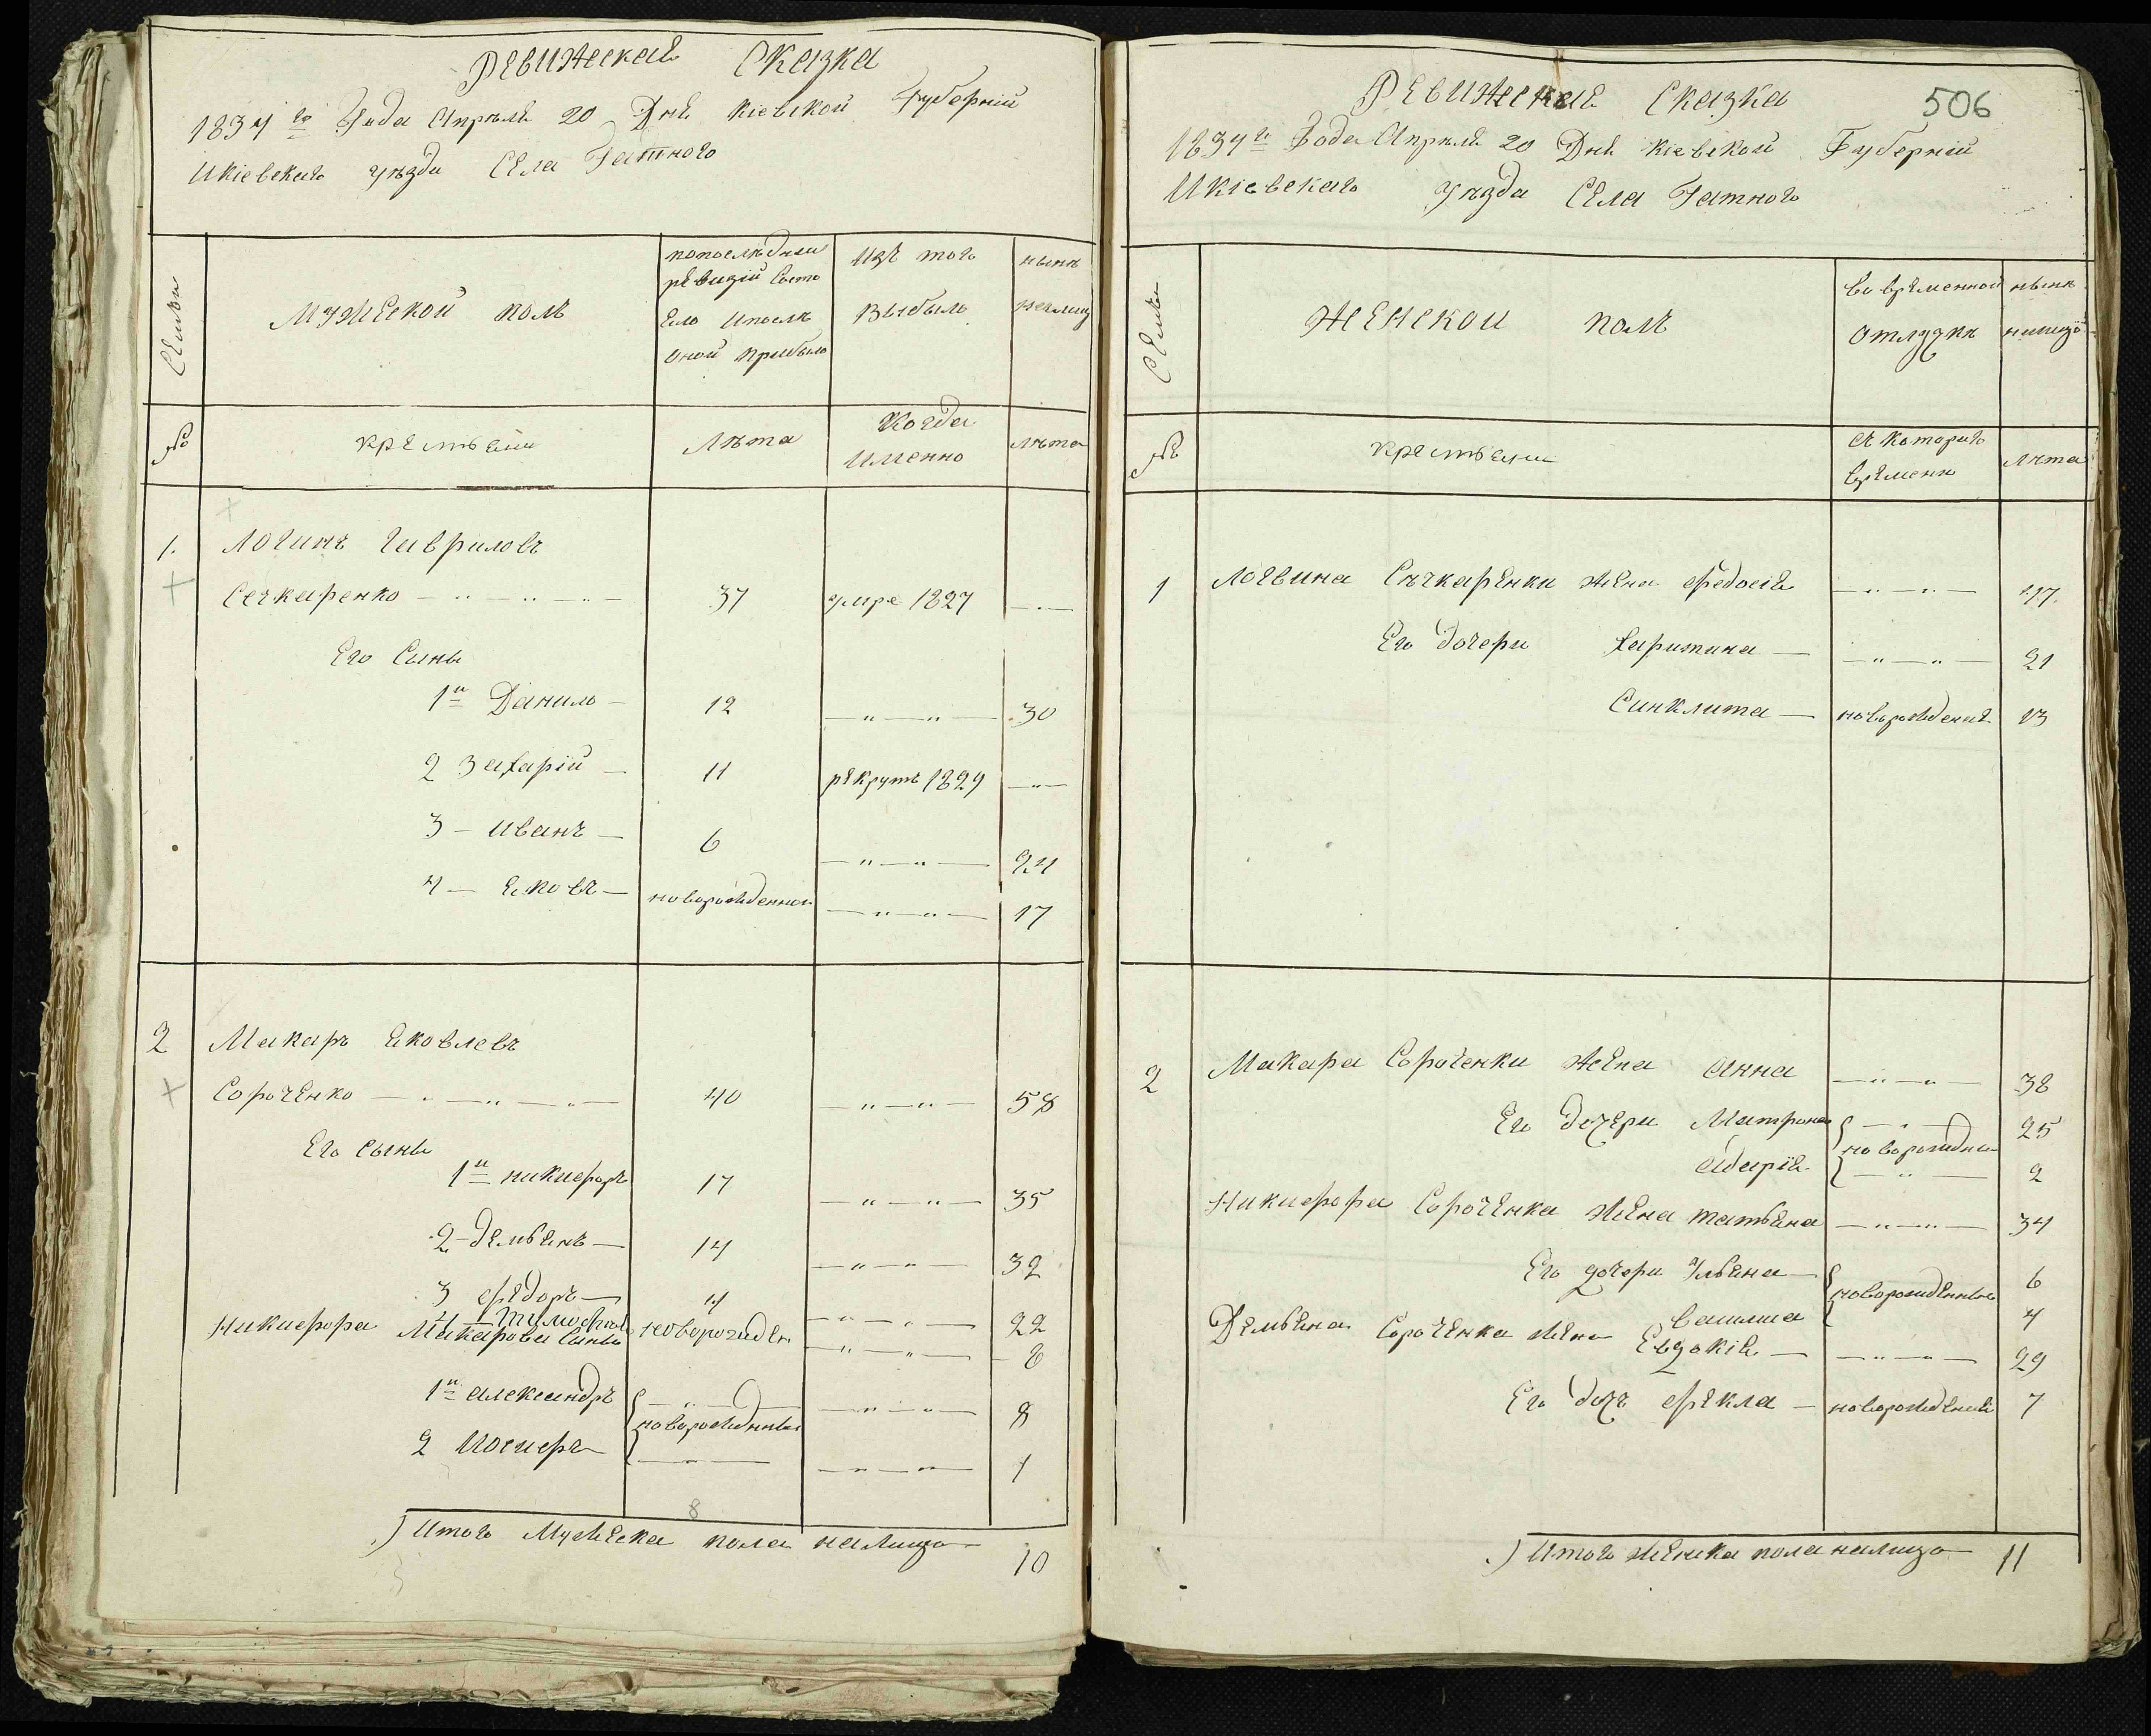 Ревижская Сказка
1834го Года Апреля 20 Дня Кіевской Губерніи
Икіевскаго уѣзда Села Гатного
Семьи
мужеской полъ
попослѣдней
ревизіи Состо
яло ипослѣ
оной прибыло
изъ того
выбыло
нынѣ
налицо
№
крестьяни
Лѣта
Когда
Именно
лѣта
1. Логинъ Гавриловъ
Сечкаренко 37 умре 1827
Его Сыны
1й Данило 12 30
2 Захарій 11 рекрутъ 1829
3 Иванъ 6 24
4 Яковъ новорожденный 17
2 Макаръ Яковлевъ
Сороченко 40 58
Его Сыны
1й никифоръ 17 35
2 демьянъ 14 32
3 федоръ 4 22
4 Тимофей новорожден. 8
Никифора Макарова Сыны
1й александръ 8
новорожденныи
2 Иосифъ 1
8
Итого Мужеска пола налицо 10
Ревижская Сказка
506
1834го Года Апреля 20 Дня Кіевской Губерніи
Икіевскаго Уѣзда Села Гатного
Семьи
Женской полъ
во временной
отлучкѣ
нынѣ
налицо
№
крестьяни
съ котораго
времени
Лѣта
1 Логвина Сѣчкаренки жена Федосія 47
Его дочери Харитина 21
Синклита новорожденая 13
2 Макара Сороченки жена Анна 38
Его дочери Матрона 25
новорождены
Марія 2
Никифора Сороченка жена татьяна 34
Его дочери Ульяна 6
новорожденныя
4
Демьяна Сороченка жена Евдокія 29
Его дочь Фекла новорожденная 7
Итого женска пола налицо 11